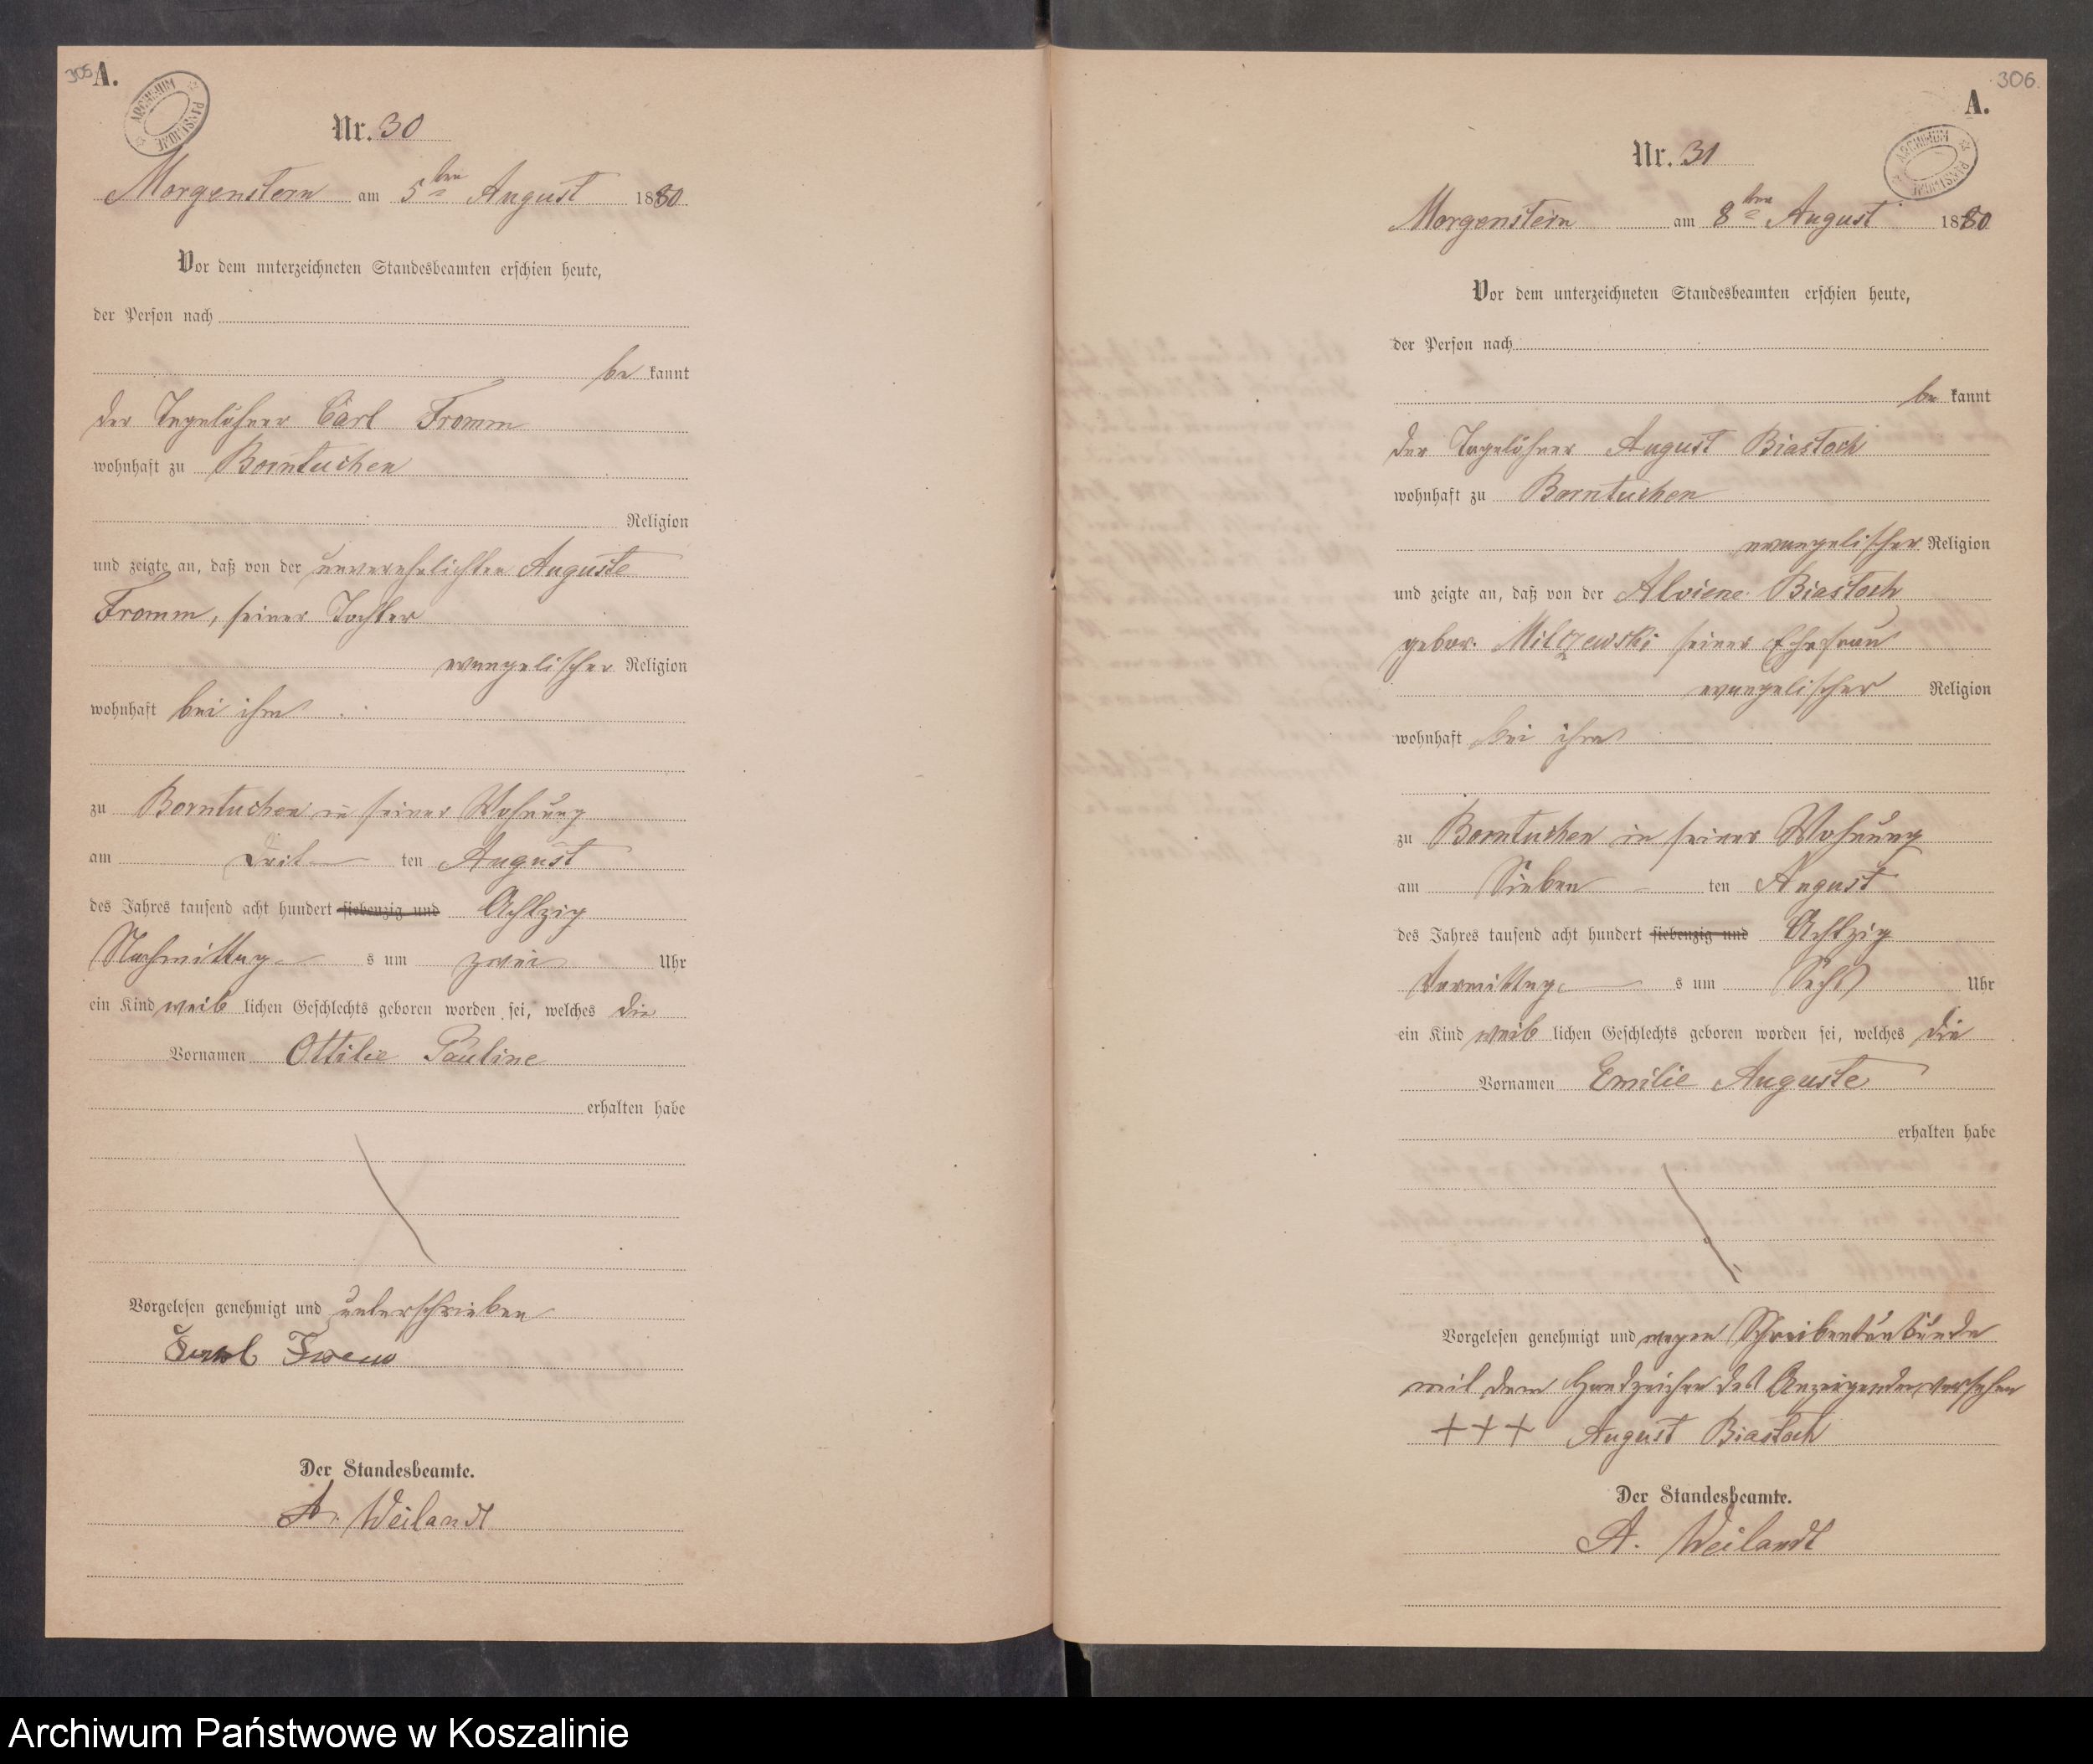 305
A.
ARCHIWUM PAŃSTWOWE
Nr. 30
Morgenstern am 5ten August 1880
Vor dem unterzeichneten Standesbeamten erschien heute,
der Person nach
be kannt
der Tagelöhner Carl Fromm
wohnhaft zu Borntuchen
Religion
und zeigte an, daß von der unverehelichten Auguste
Fromm, seiner Tochter
evangelischer Religion
wohnhaft bei ihm
zu Borntuchen in seiner Wohnung
am Drit ten August
des Jahres tausend acht hundert siebenzig und Achtzig
Nachmittag s um zwei Uhr
ein Kind weib lichen Geschlechts geboren worden sei, welches die
Vornamen Ottilie Pauline
erhalten habe
Vorgelesen genehmigt und unterschrieben
Der Standesbeamte.
A. Weilandt
306
A.
ARCHIWUM PAŃSTWOWE
Nr. 31
Morgenstern am 8ten August 1880
Vor dem unterzeichneten Standesbeamten erschien heute,
der Person nach
be kannt
der Tagelöhner August Biastoch
wohnhaft zu Borntuchen
evangelischer Religion
und zeigte an, daß von der Alviene Biastoch
gebor. Milczewski seiner Ehefrau
evangelischer Religion
wohnhaft bei ihm
zu Borntuchen in seiner Wohnung
am Sieben ten August
des Jahres tausend acht hundert siebenzig und Achtzig
Vormittag s um Sechs Uhr
ein Kind weib lichen Geschlechts geboren worden sei, welches die
Vornamen Emilie Auguste
erhalten habe
Vorgelesen genehmigt und wegen Schreibensunkunde
mit dem Handzeichen des Anzeigenden versehen
+++ August Biastoch
Der Standesbeamte.
A. Weilandt
Archiwum Państwowe w Koszalinie